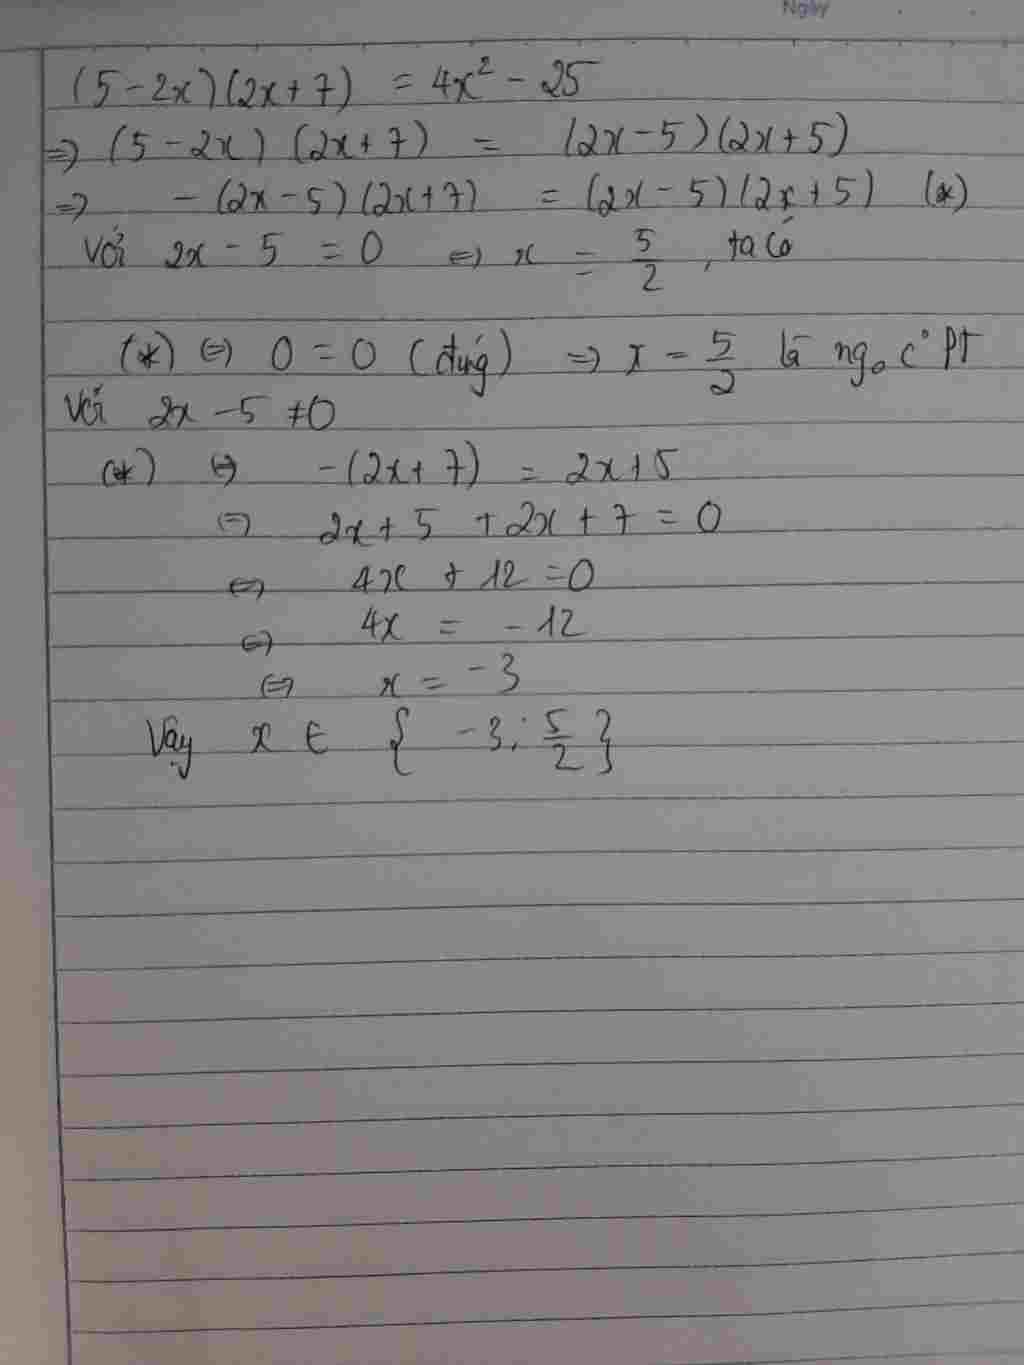 Ngày
(5-2x)(2x+7) = 4x² - 25
=> (5-2x) (2x+7) = (2x-5)(2x+5)
=> -(2x-5)(2x+7) = (2x-5)(2x+5) (*)
Với 2x - 5 = 0 <=> x = 5/2, ta có
(*) <=> 0 = 0 (đúng) => x = 5/2 là ngo c° PT
Với 2x - 5 ≠ 0
(*) <=> -(2x+7) = 2x+5
<=> 2x+5 + 2x+7 = 0
<=> 4x + 12 = 0
<=> 4x = -12
<=> x = -3
Vậy x ∈ { -3; 5/2 }